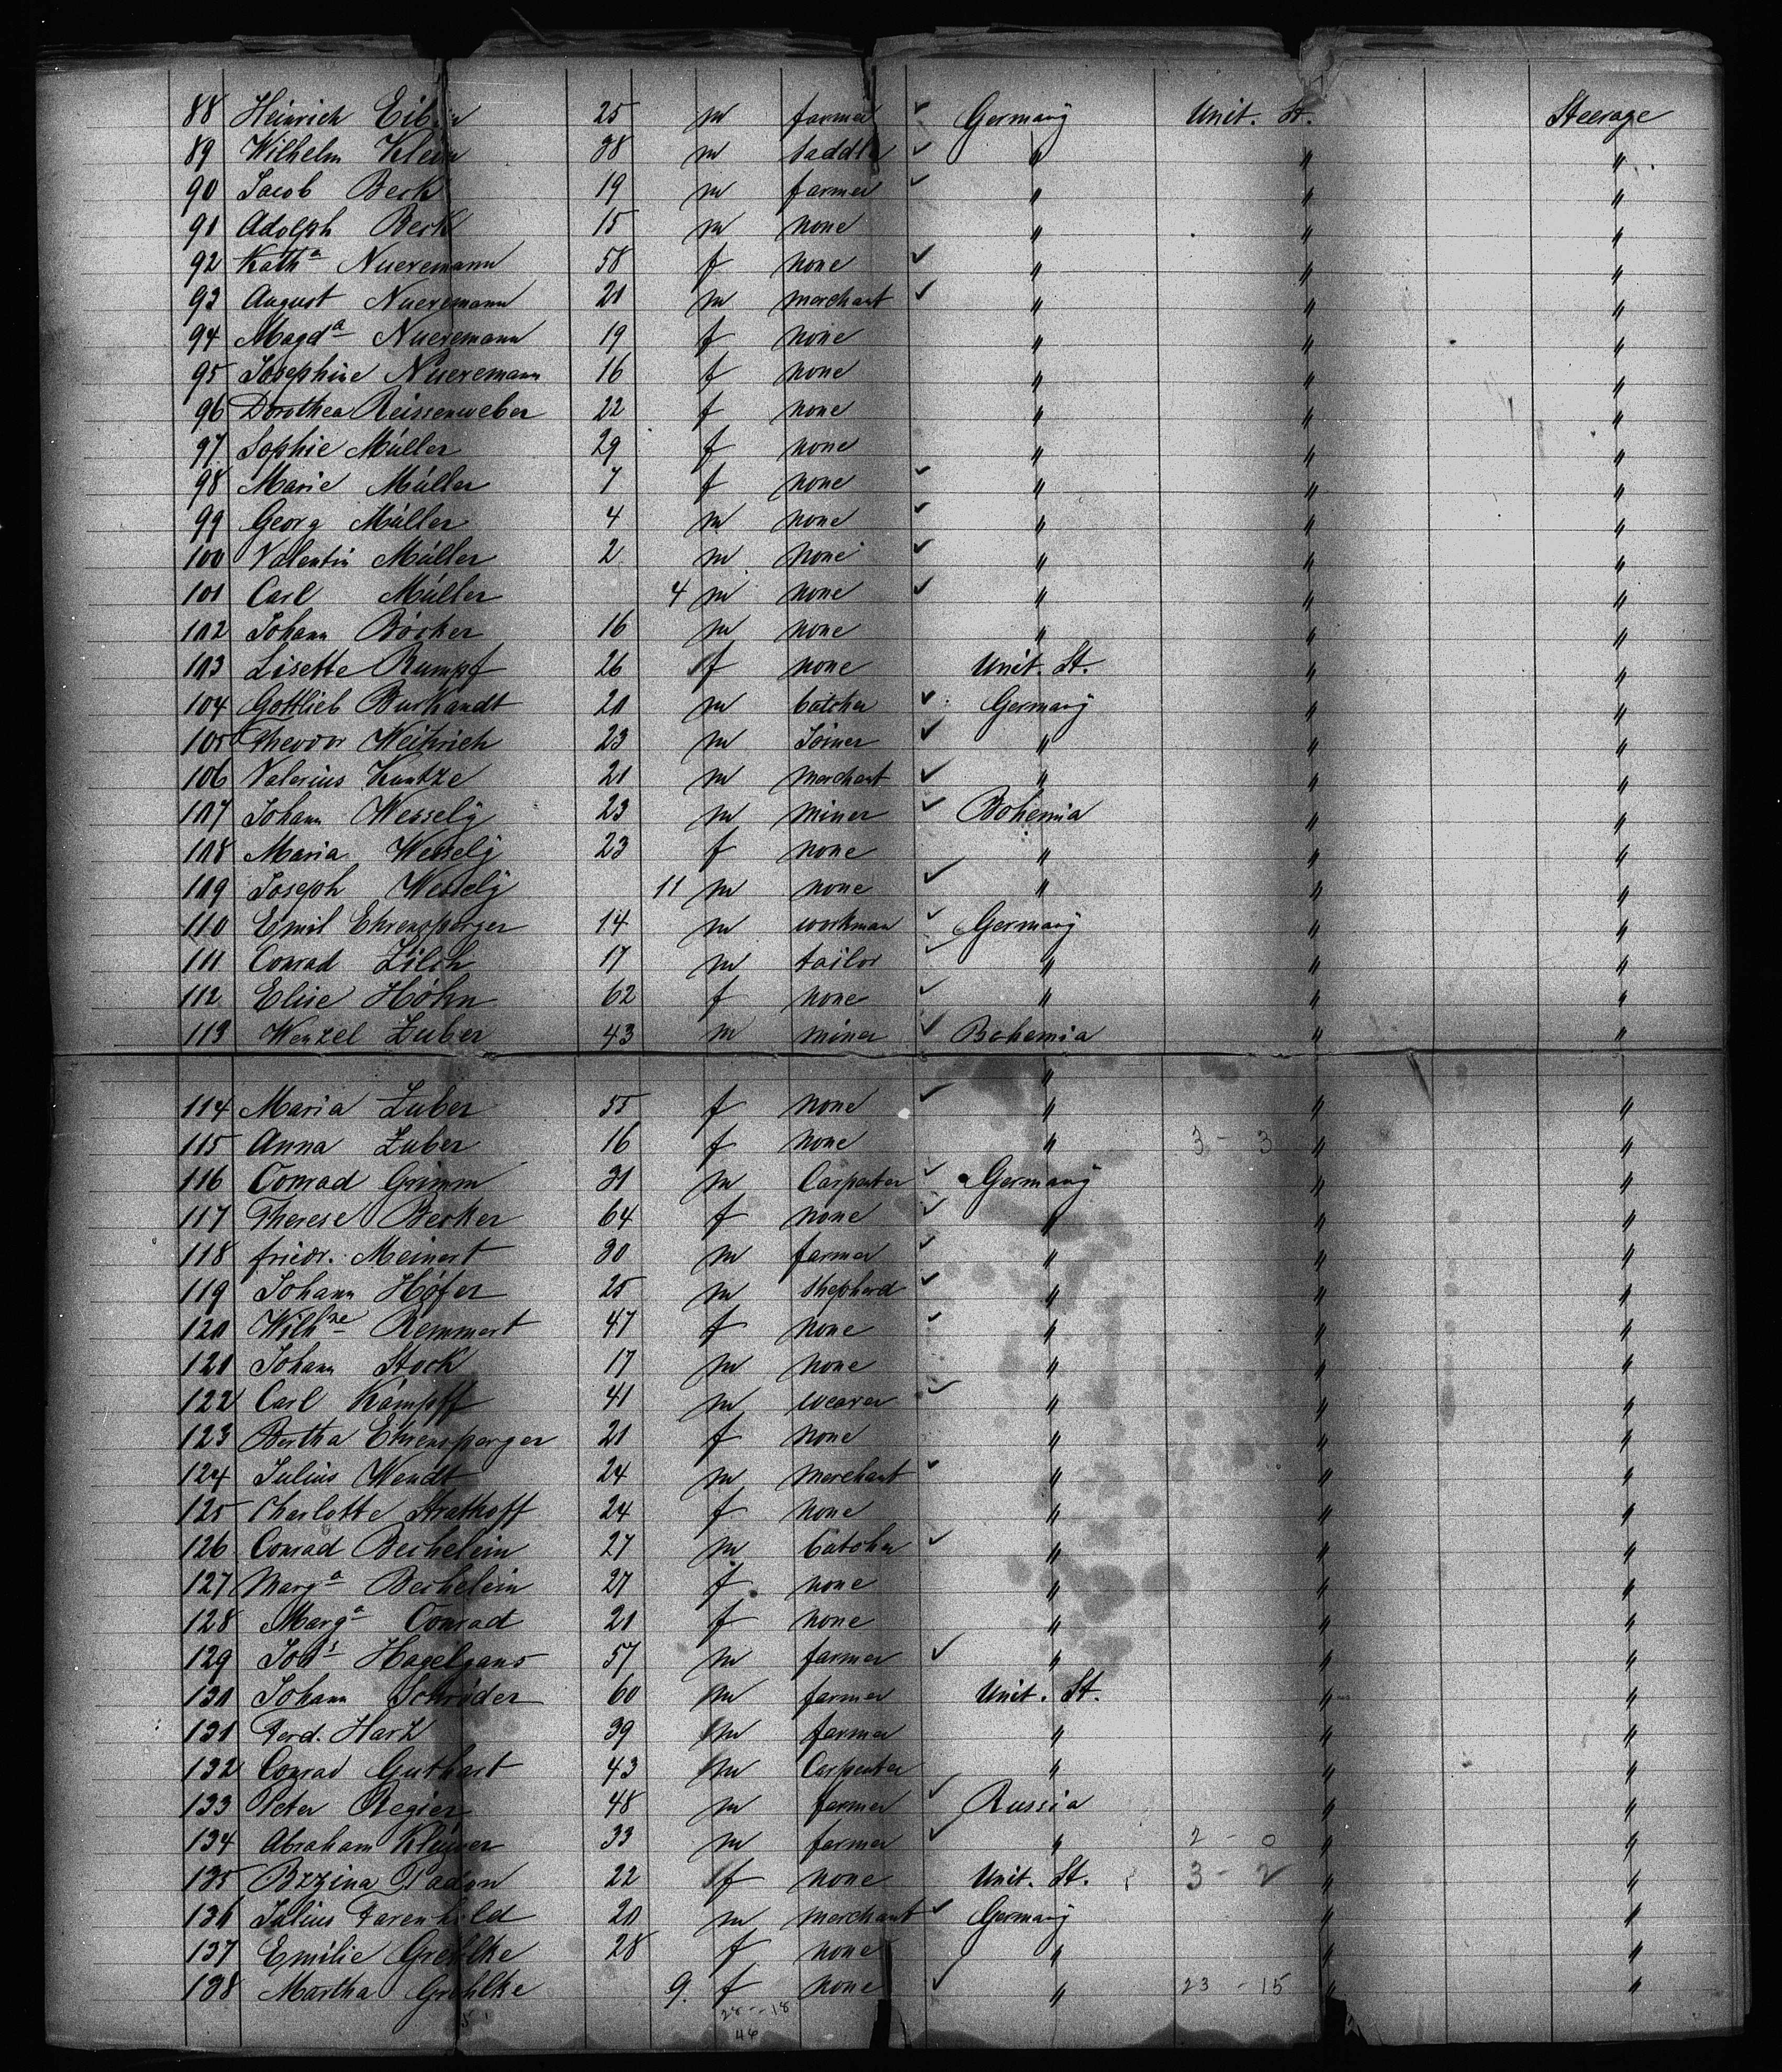 88 Heinrich 25 m farmer ✓ Germany Unit. St. Steerage
89 Wilhelm Klein 38 m saddler ✓ " " "
90 Jacob Beck 19 m farmer ✓ " " "
91 Adolph Beck 15 m none " " "
92 Kath<sup>a</sup> Nueremann 58 f none ✓ " " "
93 August Nueremann 21 m merchant ✓ " " "
94 Magd<sup>a</sup> Nueremann 19 f none " " "
95 Josephine Nueremann 16 f none " " "
96 Dorothea Reissenweber 22 f none " " "
97 Sophie Müller 29 f none " " "
98 Marie Müller 7 f none ✓ " " "
99 Georg Müller 4 m none ✓ " " "
100 Valentin Müller 2 m none ✓ " " "
101 Carl Müller 4 m none ✓ " " "
102 Johann Böcker 16 m none " " "
103 Lisette Rumpf 26 f none Unit. St. " "
104 Gottlieb Burkandt 20 m butcher ✓ Germany " "
105 Theodor Weihrich 23 m Joiner ✓ " " "
106 Valerius Kuntze 21 m merchant ✓ " " "
107 Johann Wessely 23 m miner ✓ Bohemia " "
108 Maria Wessely 23 f none " " "
109 Joseph Wessely 11 m none ✓ " " "
110 Emil Ehrensperger 14 m workman ✓ Germany " "
111 Conrad Zilch 17 m tailor ✓ " " "
112 Elise Höhn 62 f none ✓ " " "
113 Wenzel Zuber 43 m miner ✓ Bohemia " "
"
114 Maria Zuber 55 f none ✓ " " "
115 Anna Zuber 16 f none " 3 - 3 " "
116 Conrad Grimm 31 m Carpenter ✓ Germany " "
117 Therese Becker 64 f none ✓ " " "
118 friedr. Meinert 30 m farmer ✓ " " "
119 Johann Höfer 25 m shepherd ✓ " " "
120 Wilh<sup>ne</sup> Remmert 47 f none ✓ " " "
121 Johann Stock 17 m none " " "
122 Carl Kämpff 41 m weaver ✓ " " "
123 Bertha Ehrensperger 21 f none " " "
124 Julius Wendt 24 m merchant ✓ " " "
125 Charlotte Strathoff 24 f none " " "
126 Conrad Bechelein 27 m butcher ✓ " " "
127 Marg<sup>a</sup> Bechelein 27 f none " " "
128 Marg<sup>a</sup> Conrad 21 f none " " "
129 Hagelgans 57 m farmer ✓ " " "
130 Johann Schröder 60 m farmer Unit. St. " "
131 Ferd. Harz 39 m farmer " " "
132 Conrad Guthart 43 m Carpenter " " "
133 Peter Regier 48 m farmer ✓ Russia " "
134 Abraham Klewer 33 m farmer ✓ " 2 - 0 " "
135 22 f none Unit. St. 3 - 2 " "
136 Julius Farenhold 20 m merchant ✓ Germany " "
137 Emilie Grehlke 28 f none " " "
138 Martha Grehlke 9. f none ✓ " 23 - 15 " "
28 - 18
46